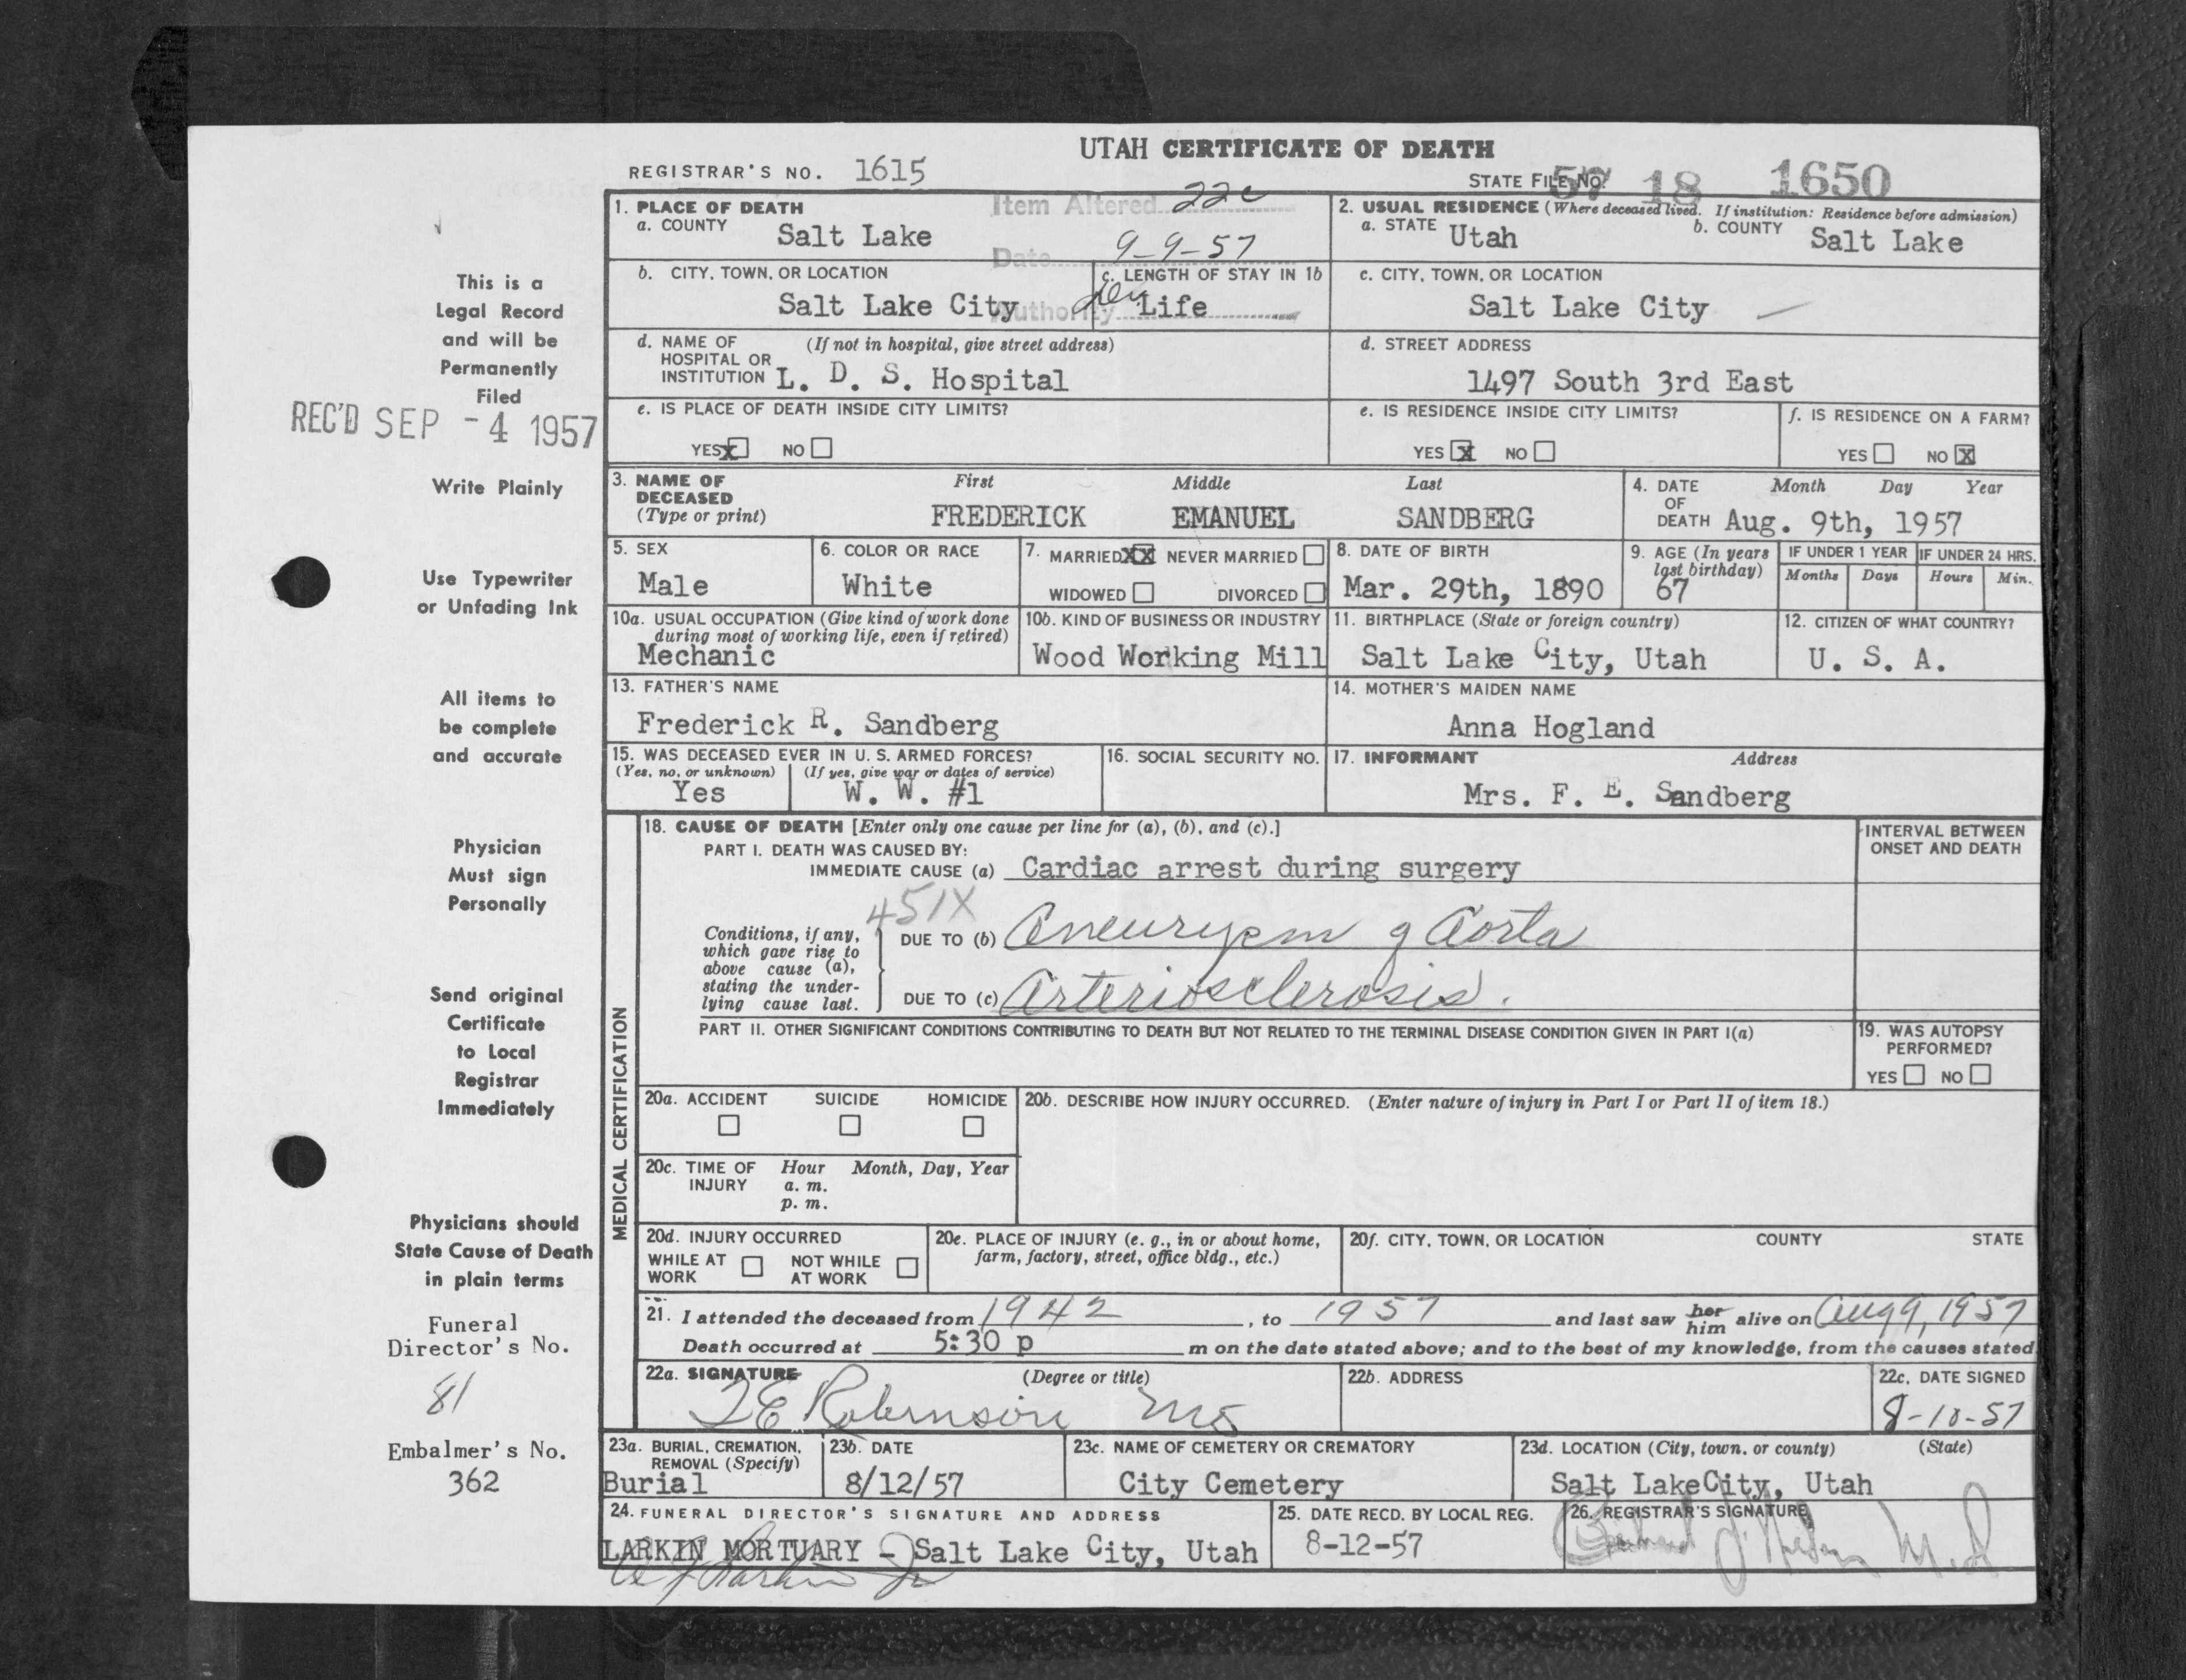 UTAH CERTIFICATE OF DEATH
REGISTRAR'S NO. 1615
STATE FILE NO. 57 18 1650
Item Altered 22c
Date 9-9-57
Authority
1. PLACE OF DEATH
a. COUNTY Salt Lake
2. USUAL RESIDENCE (Where deceased lived. If institution: Residence before admission)
a. STATE Utah b. COUNTY Salt Lake
b. CITY, TOWN, OR LOCATION
Salt Lake City
c. LENGTH OF STAY IN 1b
Life
c. CITY, TOWN, OR LOCATION
Salt Lake City
d. NAME OF HOSPITAL OR INSTITUTION (If not in hospital, give street address)
L. D. S. Hospital
d. STREET ADDRESS
1497 South 3rd East
e. IS PLACE OF DEATH INSIDE CITY LIMITS?
YES X NO
e. IS RESIDENCE INSIDE CITY LIMITS?
YES X NO
f. IS RESIDENCE ON A FARM?
YES NO X
3. NAME OF DECEASED (Type or print)
First Middle Last
FREDERICK EMANUEL SANDBERG
4. DATE OF DEATH Month Day Year
Aug. 9th, 1957
5. SEX
Male
6. COLOR OR RACE
White
7. MARRIED XX NEVER MARRIED
WIDOWED DIVORCED
8. DATE OF BIRTH
Mar. 29th, 1890
9. AGE (In years last birthday)
67
IF UNDER 1 YEAR IF UNDER 24 HRS.
Months Days Hours Min.
10a. USUAL OCCUPATION (Give kind of work done during most of working life, even if retired)
Mechanic
10b. KIND OF BUSINESS OR INDUSTRY
Wood Working Mill
11. BIRTHPLACE (State or foreign country)
Salt Lake City, Utah
12. CITIZEN OF WHAT COUNTRY?
U. S. A.
13. FATHER'S NAME
Frederick R. Sandberg
14. MOTHER'S MAIDEN NAME
Anna Hogland
15. WAS DECEASED EVER IN U. S. ARMED FORCES?
(Yes, no, or unknown) (If yes, give war or dates of service)
Yes W. W. #1
16. SOCIAL SECURITY NO.
17. INFORMANT Address
Mrs. F. E. Sandberg
MEDICAL CERTIFICATION
18. CAUSE OF DEATH [Enter only one cause per line for (a), (b), and (c).]
INTERVAL BETWEEN
ONSET AND DEATH
PART I. DEATH WAS CAUSED BY:
IMMEDIATE CAUSE (a) Cardiac arrest during surgery
451X
Conditions, if any,
which gave rise to
above cause (a),
stating the under-
lying cause last.
DUE TO (b) Aneurysm of Aorta
DUE TO (c) Arteriosclerosis.
PART II. OTHER SIGNIFICANT CONDITIONS CONTRIBUTING TO DEATH BUT NOT RELATED TO THE TERMINAL DISEASE CONDITION GIVEN IN PART I(a)
19. WAS AUTOPSY
PERFORMED?
YES NO
20a. ACCIDENT SUICIDE HOMICIDE
20b. DESCRIBE HOW INJURY OCCURRED. (Enter nature of injury in Part I or Part II of item 18.)
20c. TIME OF INJURY Hour Month, Day, Year
a. m.
p. m.
20d. INJURY OCCURRED
WHILE AT WORK NOT WHILE AT WORK
20e. PLACE OF INJURY (e. g., in or about home,
farm, factory, street, office bldg., etc.)
20f. CITY, TOWN, OR LOCATION COUNTY STATE
21. I attended the deceased from 1942, to 1957 and last saw her him alive on Aug 9, 1957
Death occurred at 5:30 p m on the date stated above; and to the best of my knowledge, from the causes stated
22a. SIGNATURE (Degree or title)
Robinson MD
22b. ADDRESS
22c. DATE SIGNED
8-10-57
23a. BURIAL, CREMATION, REMOVAL (Specify)
Burial
23b. DATE
8/12/57
23c. NAME OF CEMETERY OR CREMATORY
City Cemetery
23d. LOCATION (City, town, or county) (State)
Salt LakeCity, Utah
24. FUNERAL DIRECTOR'S SIGNATURE AND ADDRESS
LARKIN MORTUARY - Salt Lake City, Utah
Larkin Jr
25. DATE RECD. BY LOCAL REG.
8-12-57
26. REGISTRAR'S SIGNATURE
M.D
This is a
Legal Record
and will be
Permanently
Filed
REC'D SEP -4 1957
Write Plainly
Use Typewriter
or Unfading Ink
All items to
be complete
and accurate
Physician
Must sign
Personally
Send original
Certificate
to Local
Registrar
Immediately
Physicians should
State Cause of Death
in plain terms
Funeral
Director's No.
81
Embalmer's No.
362